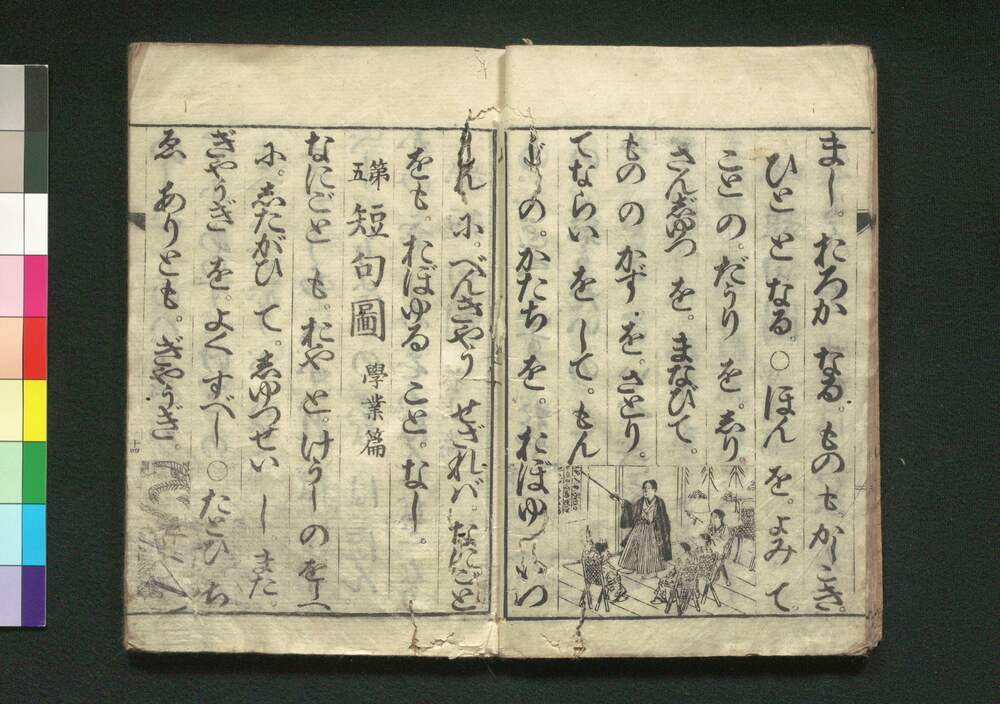 まし。おろか なる。もの も。かしこき。
ひと と なる。○ ほん を。よみ て。
こと の。だうり を。しり
さんじゆつ を。まなびて。
もの の かず を。さとり。
てならい を して。もん
じ の。かたち を。おぼゆ いつ
れ に。べんきやう せざれバ。なにごと
をも。おぼゆる こと。なし。
第五 短句圖 學業篇
なにごと も。おや と。けうし の をしへ
に。したがひ て。しゆつせい し また。
ぎやうぎ を。よく すべし ○ たとひ ち
ゑ ありとも。ぎやうぎ。
十四